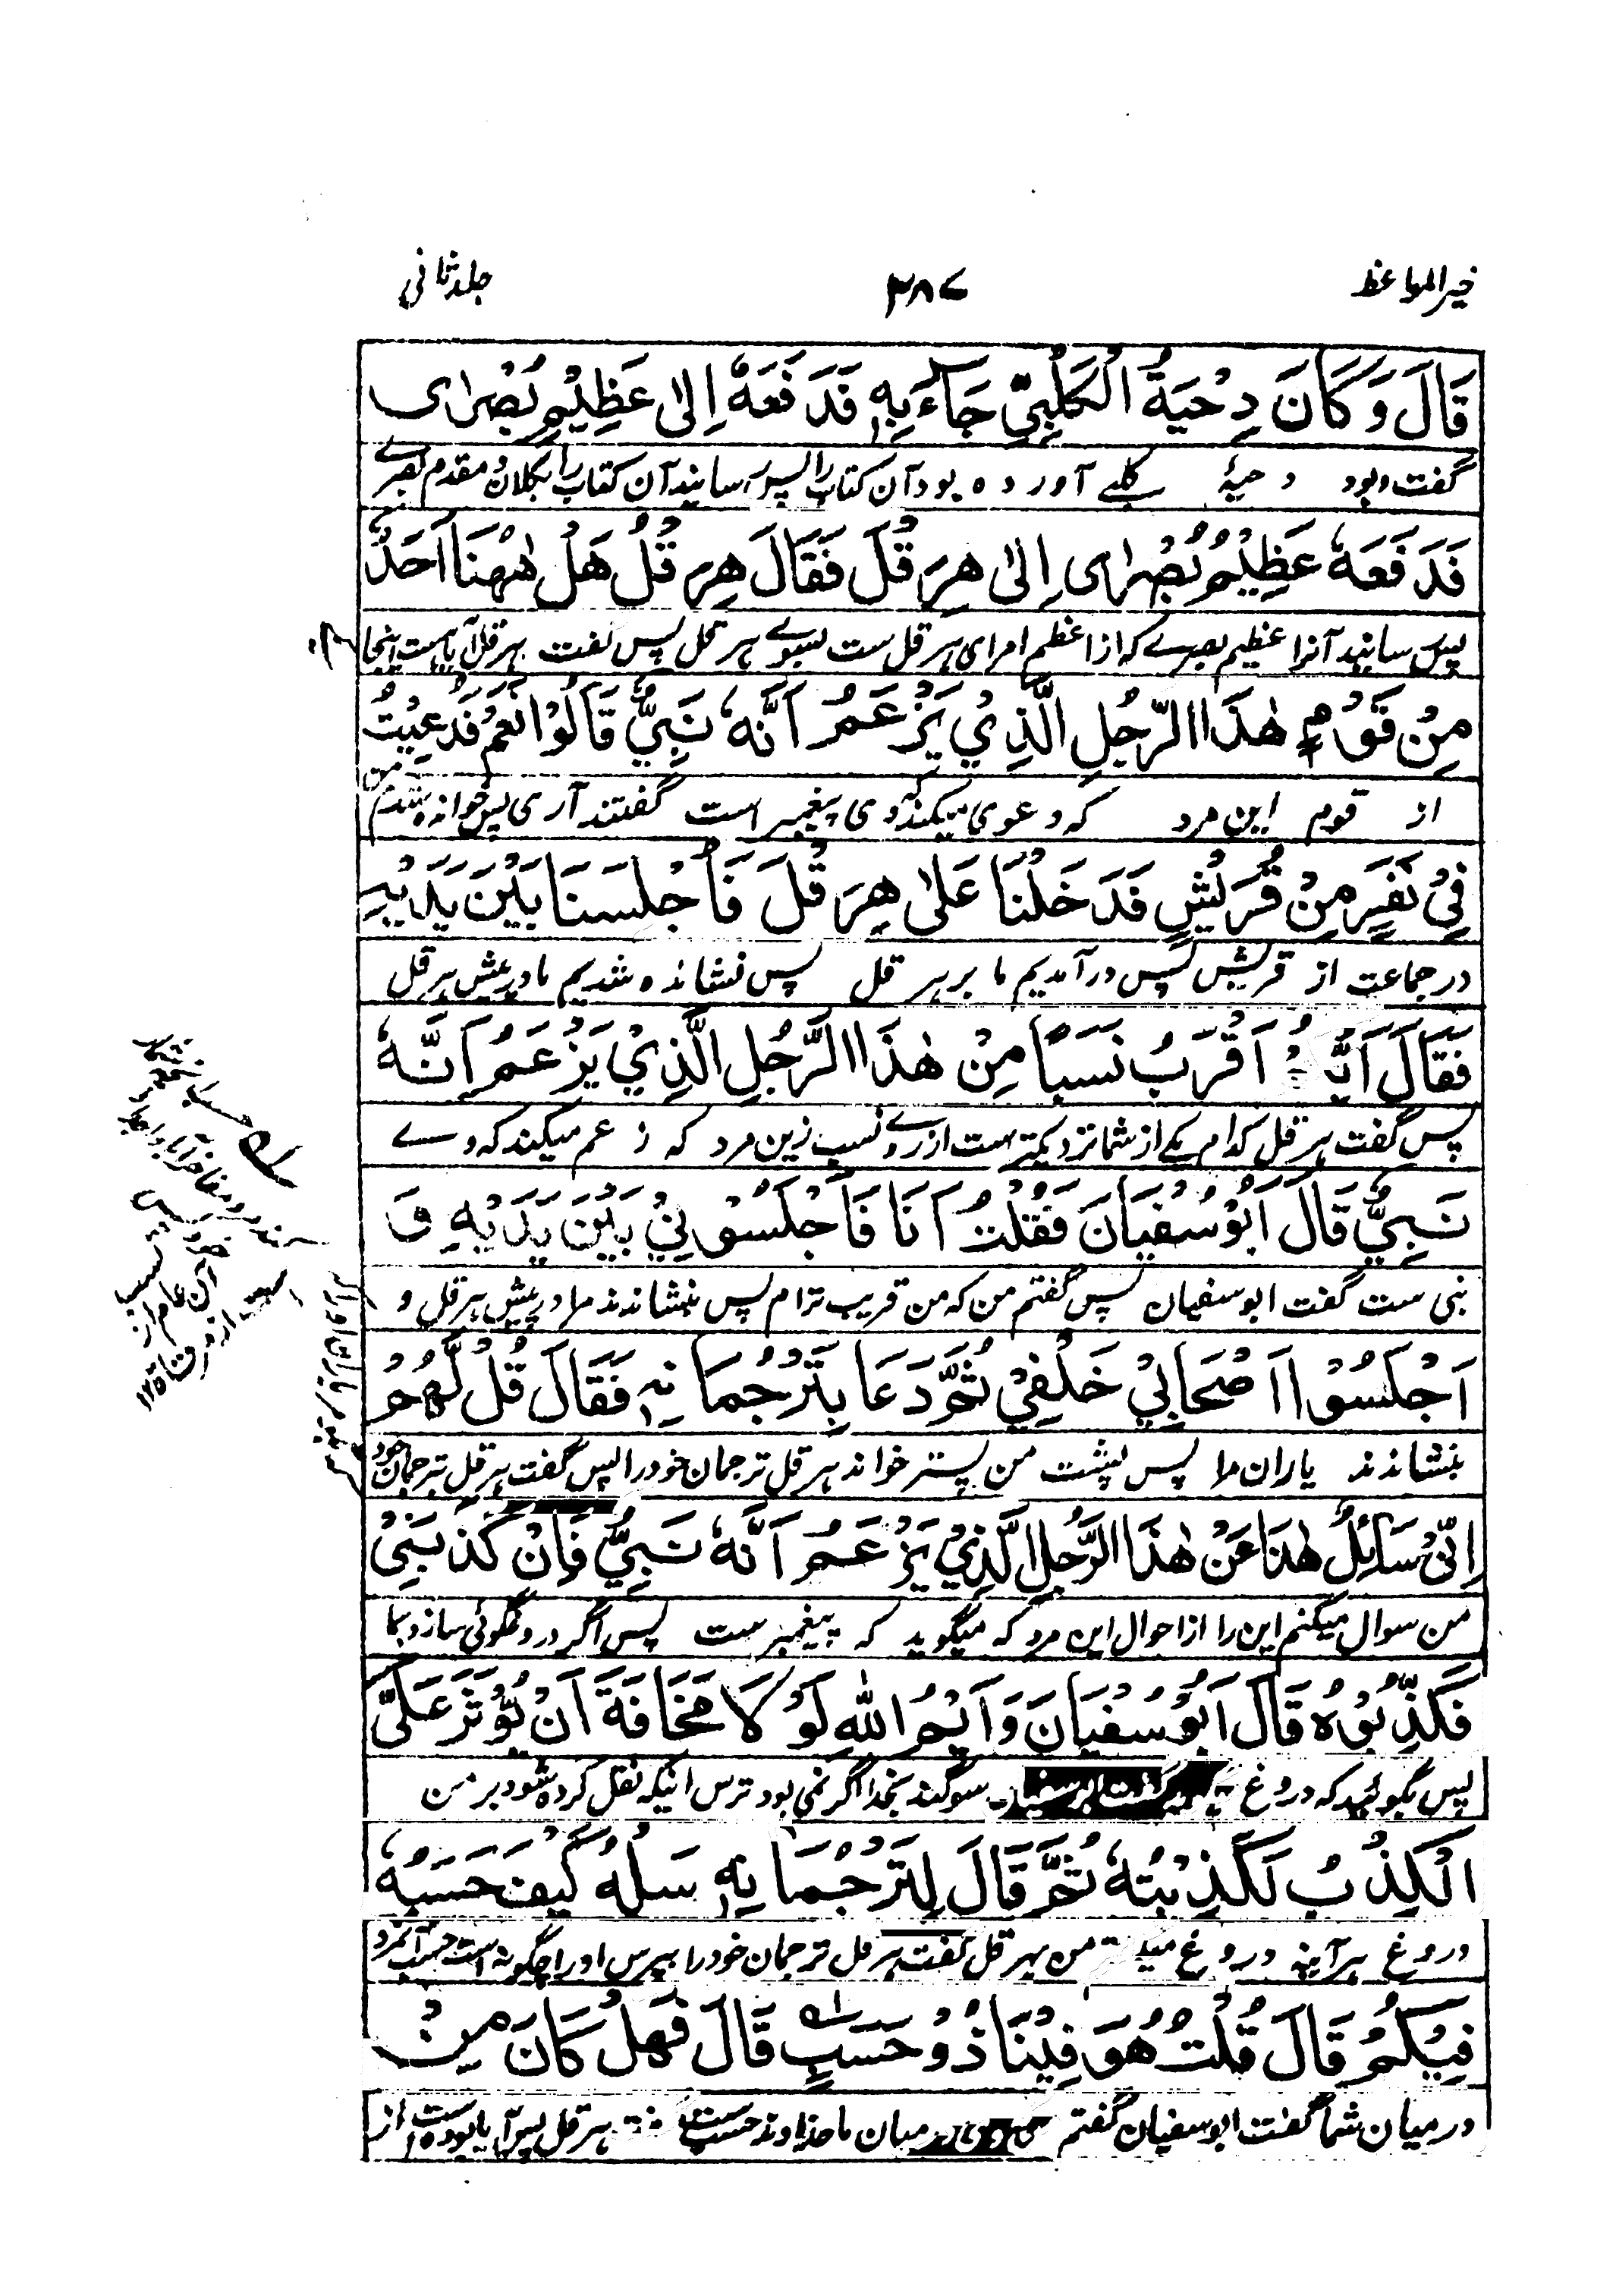 خیر المواعظ ۳۸۷ جلد ثانی
قَالَ وَكَانَ دِحْيَةُ الْكَلْبِيُّ جَاءَ بِهٖ فَدَفَعَهٗ اِلٰى عَظِيْمِ بُصْرٰى
گفت وبود دحیۂ کلبے آوردہ بود آن کتاب را پس رسانید آن کتاب را بکلان و مقدم بصرے
فَدَفَعَهٗ عَظِيْمُ بُصْرٰى اِلٰى هِرَقْلَ فَقَالَ هِرَقْلُ هَلْ هٰهُنَا اَحَدٌ
پس رسانید آنرا عظیم بصرے کہ از اعظم امرای ہرقل ست بسوے ہرقل پس گفت ہرقل آیا ہست اینجا
مِنْ قَوْمِ هٰذَا الرَّجُلِ الَّذِيْ يَزْعَمُ اَنَّهٗ نَبِيٌّ قَالُوْا نَعَمْ فَدُعِيْتُ
از قوم این مرد کہ دعوی میکند کہ وی پیغمبر است گفتند آری پس خواندہ شدم من
فِيْ نَفَرٍ مِنْ قُرَيْشٍ فَدَخَلْنَا عَلٰى هِرَقْلَ فَاُجْلِسْنَا بَيْنَ يَدَيْهِ
در جماعت از قریش پس در آمدیم ما بر ہرقل پس نشاندہ شدیم ما در پیش ہرقل
فَقَالَ اَيُّكُمْ اَقْرَبُ نَسَبًا مِنْ هٰذَا الرَّجُلِ الَّذِيْ يَزْعَمُ اَنَّهٗ
پس گفت ہرقل کدام یکے از شما نزدیکتر ست از روے نسب زین مرد کہ زعم میکند کہ وے
نَبِيٌّ قَالَ اَبُوْ سُفْيَانَ فَقُلْتُ اَنَا فَاَجْلَسُوْنِيْ بَيْنَ يَدَيْهِ وَ
نبی ست گفت ابو سفیان پس گفتم من کہ من قریب ترام پس بنشاندند مرا در پیش ہرقل و
اَجْلَسُوْا اَصْحَابِيْ خَلْفِيْ ثُمَّ دَعَا بِتَرْجُمَانِهٖ فَقَالَ قُلْ لَهُمْ
بنشاندند یاران مرا پس پشت من پستر خواند ہرقل ترجمان خود را پس گفت ہرقل ترجمان خود
اِنِّيْ سَائِلٌ هٰذَا عَنْ هٰذَا الرَّجُلِ الَّذِيْ يَزْعَمُ اَنَّهٗ نَبِيٌّ فَاِنْ كَذَبَنِيْ
من سوال میکنم این را از احوال این مرد کہ میگوید کہ پیغمبر ست پس اگر دروغگوئی سازد بما
فَكَذِّبُوْهُ قَالَ اَبُوْ سُفْيَانَ وَاَيْمُ اللهِ لَوْ لَا مَخَافَةَ اَنْ يُّؤْثَرَ عَلَيَّ
پس بگوئید کہ دروغ سوگند بخدا اگر نمی بود ترس اینکہ نقل کردہ شود بر من
الْكِذْبُ لَكَذِبْتُهٗ ثُمَّ قَالَ لِتَرْجُمَانِهٖ سَلْهُ كَيْفَ حَسَبُهٗ
دروغ ہر آینہ دروغ من بہرقل گفت ہرقل ترجمان خود را بپرس او را چگونہ است حسب آنمرد
فِيْكُمْ قَالَ قُلْتُ هُوَ فِيْنَا ذُوْ حَسَبٍ قَالَ فَهَلْ كَانَ مِنْ
در میان شما گفت ابو سفیان گفتم میان ما خداوند حسب ست ہرقل پس آیا بودہ است از